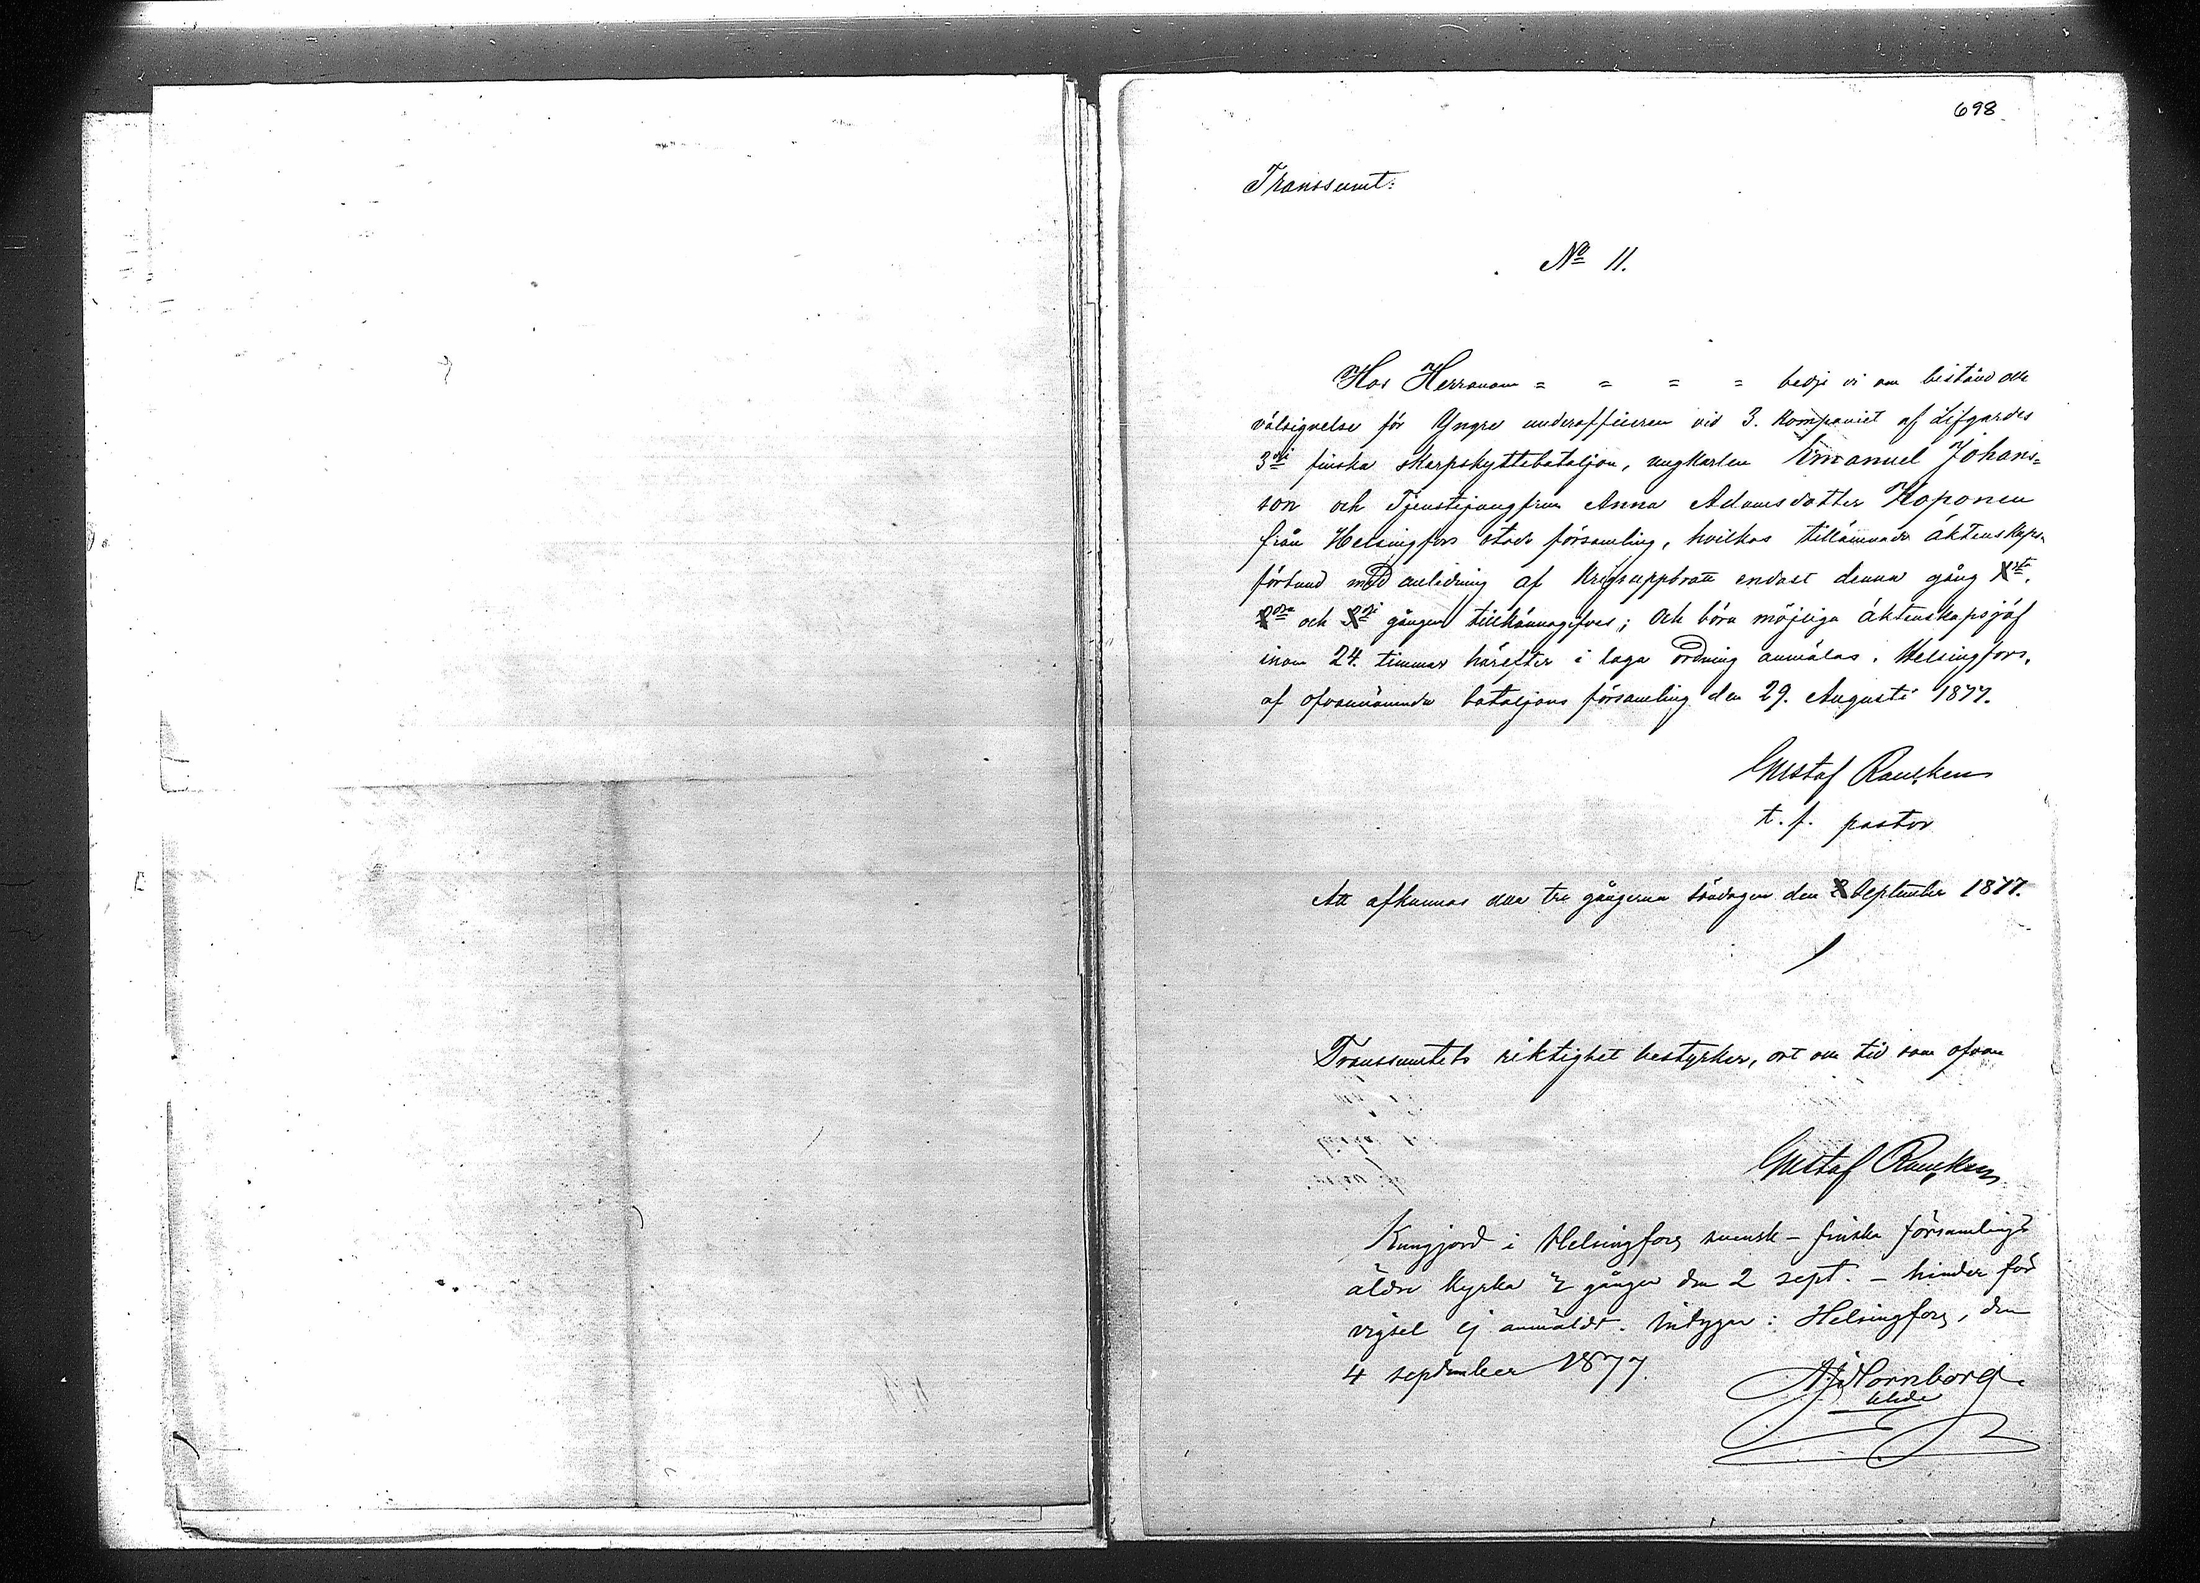 698
Transsumt:
No 11.
Hos Herranom = = = = bedje vi om bistånd och
välsignelse för Yngre underofficeren vid 3. kompaniet af Lifgardes
3dje finska skarpskyttebataljon, ungkarlen Emanuel Johans=
son och Tjenstejungfrun Anna Adamsdotter Koponen
från Helsingfors stads församling, hvilkas tillämnade äktenskaps=
förbund med anledning af krigsuppbrott endast denna gång 1sta,
2dra och 3dje gången tillkännagifves; och böra möjliga äktenskapsjäf
inom 24. timmar härefter i laga ordning anmälas. Helsingfors,
af ofvannämnda bataljons församling den 29. Augusti 1877.
Gustaf Rancken
t. f. pastor
Att afkunnas alla tre gångerna söndagen den 2 September 1877.
Transsumtets riktighet bestyrker, ort och tid som ofvan
Gustaf Rancken
Kungjord i Helsingfors svensk-finska församlings
äldre kyrka gånger den 2 sept. – hinder för
vigsel ej anmäldt. Intygar: Helsingfors, den
4 september 1877.
Hornborg.